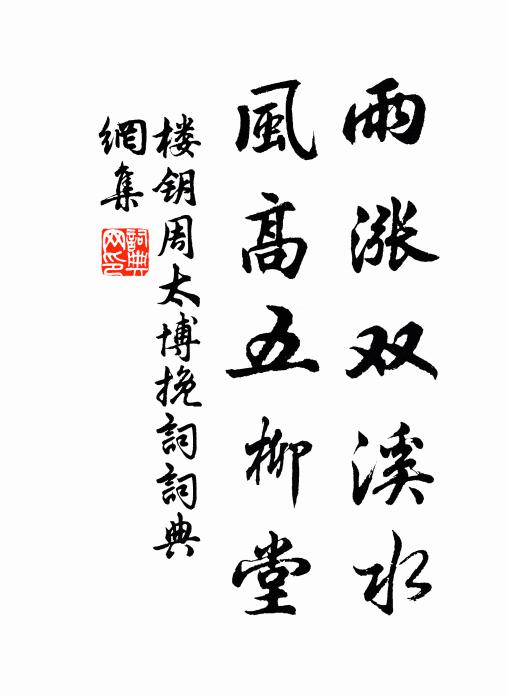 雨漲双溪水
風高五柳堂
楼钥周太博挽詞詞典
網集
詞典网印